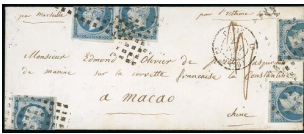 par Marseille
par l'Isthme
Monsieur Edmond Olivier de
de marine sur la corvette française la Constantine
a Macao
Chine